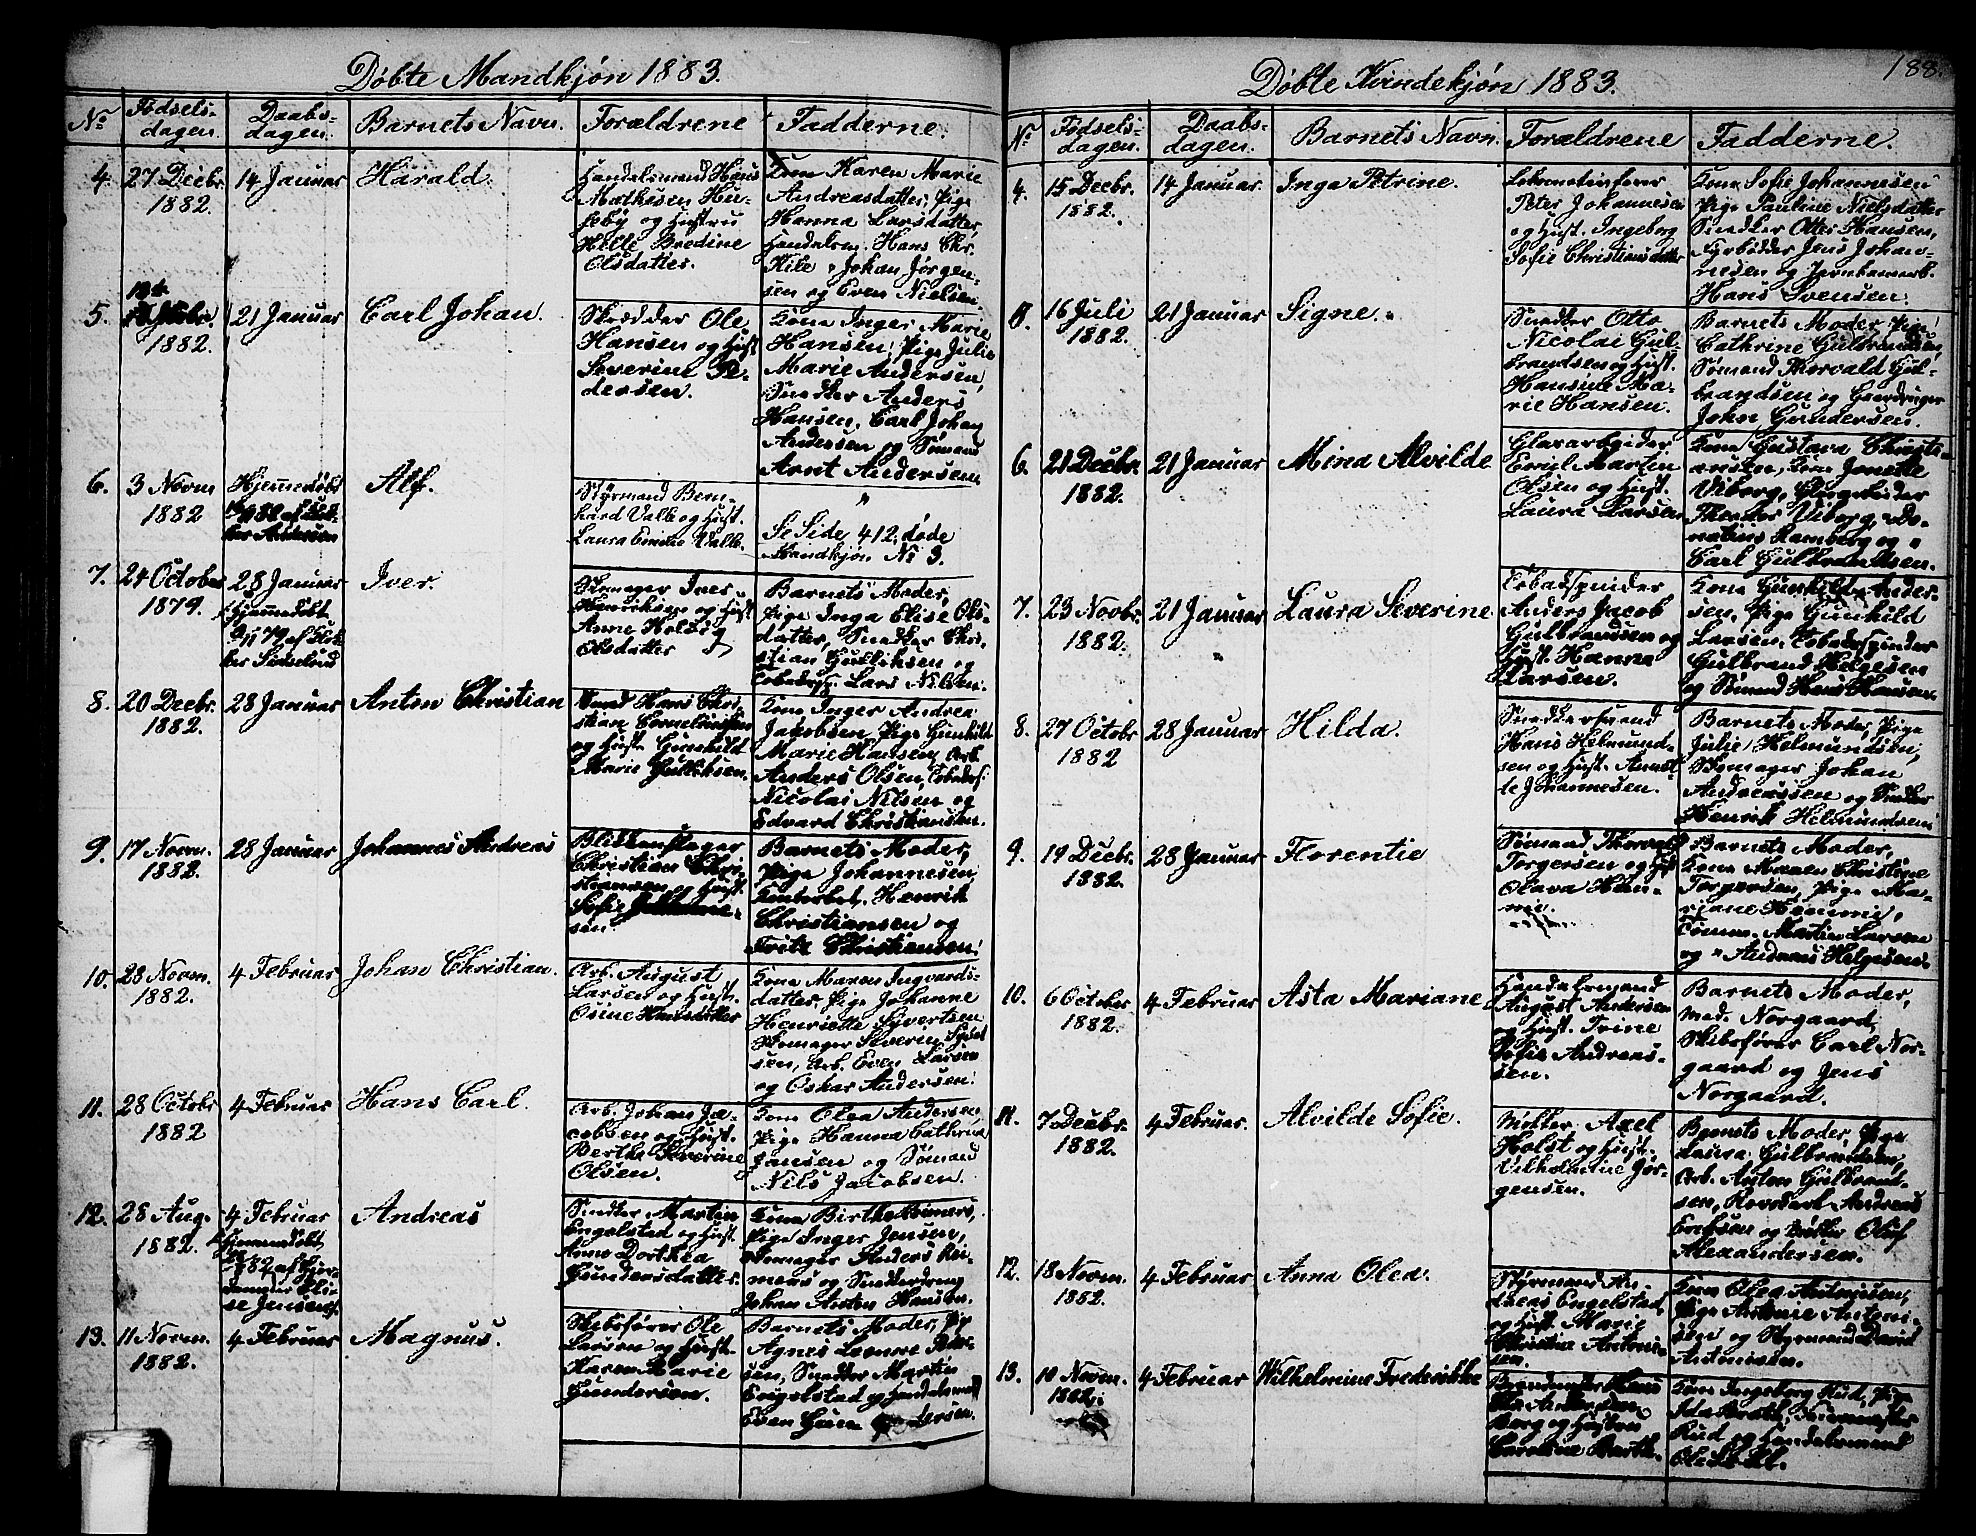 188.
Døbte Mandkjøn 1883.
No Fødsels-dagen. Daabs-dagen. Barnets Navn. Forældrene Fadderne.
4. 27 Decbr. 1882. 14 Januar Harald.
Handelsmand Hans
Mathisen Hu-
seby og Hustru
Helle Bredine
Olsdatter.
Kone Karen Marie
Andreasdatter, Pige
Hanna Larsdatter,
Handelsm. Hans Chr.
Kile, Johan Jørgen-
sen og Even Nielsen.
5. 1882. 21 Januar Carl Johan.
Skrædder Ole
Hansen og Hust.
Severine Pe-
dersen.
Kone Inger Marie
Hansen, Pige Julie
Marie Andersen,
Snedker Anders
Hansen, Carl Johan
Andersen og Sømand
Arnt Andersen.
6. 3 Novm 1882 Hjemmedøbt af Andersen Alf.
Styrmand Bern-
hard Valb og Hust.
Laura Emilie Valb.
"
Se Side 412, døde
Mandkjøn No 3.
7. 24 October 1879. 28 Januar Hjemmedøbt 79 af Iver.
Skomager Iver
Henriksen og Hust
Anne
Olsdatter
Barnets Moder,
Pige Inga Elise Ols-
datter, Snedker Chri-
stian Gulliksen og
Lars Nilsen.
8. 20 Decbr. 1882. 28 Januar Anton Christian
Smed Hans Chri-
stian Corneliussen
og Hust. Gunhild
Marie Gulliksen.
Kone Inger Andrea
Jakobsen, Pige Gunhild
Marie Hansen, Arb.
Anders Olsen,
Nicolai Nilsen og
Edvard Christiansen.
9. 17 Novm. 1882. 28 Januar Johannes Andreas
Blikkenslager
Christian Chri-
stiansen, Hust.
Sofie Johanne-
sen.
Barnets Moder,
Pige Johannesen,
Henrik
Christiansen og
Fritz Christiansen.
10. 28 Novm. 1882. 4 Februar Johan Christian.
Arb. August
Larsen og Hust.
Osine Hansdatter
Kone Maren Ingvards-
datter, Pige Johanne
Henriette Syvertsen
Skomager Severin
sen, Arb. Even Larsen
og Oskar Andersen.
11. 28 Octobr 1882 4 Februar Hans Carl.
Arb. Johan Ja-
cobsen og Hust.
Berthe Severine
Olsen.
Kone Olea Andersen
Pige Hanna Cathrine
Jansen og Sømand
Nils Jacobsen.
12. 28 Aug. 1882. 4 Februar Hjemmedøbt 82 af Jensen. Andreas
Snedker Martin
Engelstad og Hust.
Anne Dorthea
Gundersdatter.
Kone Birthe Reimers,
Pige Inger Jensen,
Skomager Anders Rei-
mers og Snedkerdreng
Johan Anton Hansen.
13. 11 Novm. 1882. 4 Februar Magnus.
Skibsfører Ole
Larsen og Hust.
Karen Marie
Gundersen.
Barnets Moder,
Agnes Leonore Peder-
sen, Snedker Martin
Engelstad og Handelsmd
Even
Døbte Kvindekjøn 1883.
No Fødsels-dagen. Daabs-dagen. Barnets Navn. Forældrene Fadderne.
4. 15 Decbr. 1882. 14 Januar. Inga Petrine.
Lokomotivfører
Peter Johannesen
og Hust. Ingeborg
Sofie Christiansdatter
Kone Sofie Johannesen
Pige Pauline Nielsdatter
Snedker Otter Hansen,
Fyrbøder Jens Johan-
nesen og Jernbanearb.
Hans Svensen.
5. 16 Juli 1882. 21 Januar Signe.
Snedker Otto
Nicolai Gul-
brandsen og Hust.
Hansine Ma-
rie Hansen.
Barnets Moder, Pige
Cathrine Gulbrandsen,
Sømand Thorvald Gul-
brandsen og Gaardbruger
John Gundersen.
6. 21 Decbr. 1882. 21 Januar Mina Alvilde
Glasarbeider
Emil Martin
Olsen og Hust.
Laura Larsen
Kone Gustava Christi-
ansen, Kone Jonette
Viborg, Glasarbeider
Theodor Viborg, Do-
natius Ramberg og "
Carl Gulbrandsen.
7. 23 Novbr. 1882. 21 Januar Laura Severine
Tobadspinder
Anders Jacob
Gulbrandsen og
Hust. Hanna
Larsen.
Kone Gunhild Ander-
sen, Pige Gunhild
Larsen, Tobaderpinder
Gulbrand Helgesen
og Sømand Hans Hansen.
8. 27 Octobr 1882 28 Januar Hilda.
Snedkersvend
Hans Helmund-
sen og Hust.
Johannesen.
Barnets Moder, Pige
Julie Helmundsen,
Skomager Johan
Andreassen og Snedker
Henrik Helmundsen.
9. 19 Decbr. 1882. 28 Januar Florentie
Sømand Thorvald
Torgersen og Hust
Olava Hem-
mi.
Barnets Moder,
Kone Maren Christine
Torgersen, Pige Ma-
riane Hemmi,
Tømm. Martin Larsen
og " Andreas Helgesen.
10. 6 October 1882. 4 Februar Asta Mariane
Handelsmand
August Andersen
og Hust. Trine
Sofie Andreas-
sen.
Barnets Moder,
Mad. Norgaard,
Skibsfører Carl Nor-
gaard og Jens
Norgaard.
11. 7 Decbr. 1882. 4 Februar. Alvilde Sofie.
Møller Axel
Holst og Hust.
Vilhelmine Jør-
gensen.
Barnets Moder, Pige
Laura Gulbrandsen,
Arb. Anton Gulbrand-
sen, Andreas
Erichsen og Møller Oluf
Alexandersen.
12. 18 Novm. 1882. 4 Februar Anna Olea.
Styrmand An-
dreas Engelstad,
og Hust. Marie
Christine Antoni-
sen.
Kone Olea Antonisen,
Pige Antonie Antoni-
sen og Styrmand David
Antonisen.
13. 10 Novm. 1882. 4 Februar Wilhelmine Fredrikke
Hans
Andersen
Borg og Hustru
Caroline
Kone Ingeborg Rud, Pige
Ida
Rud og Handelsmand